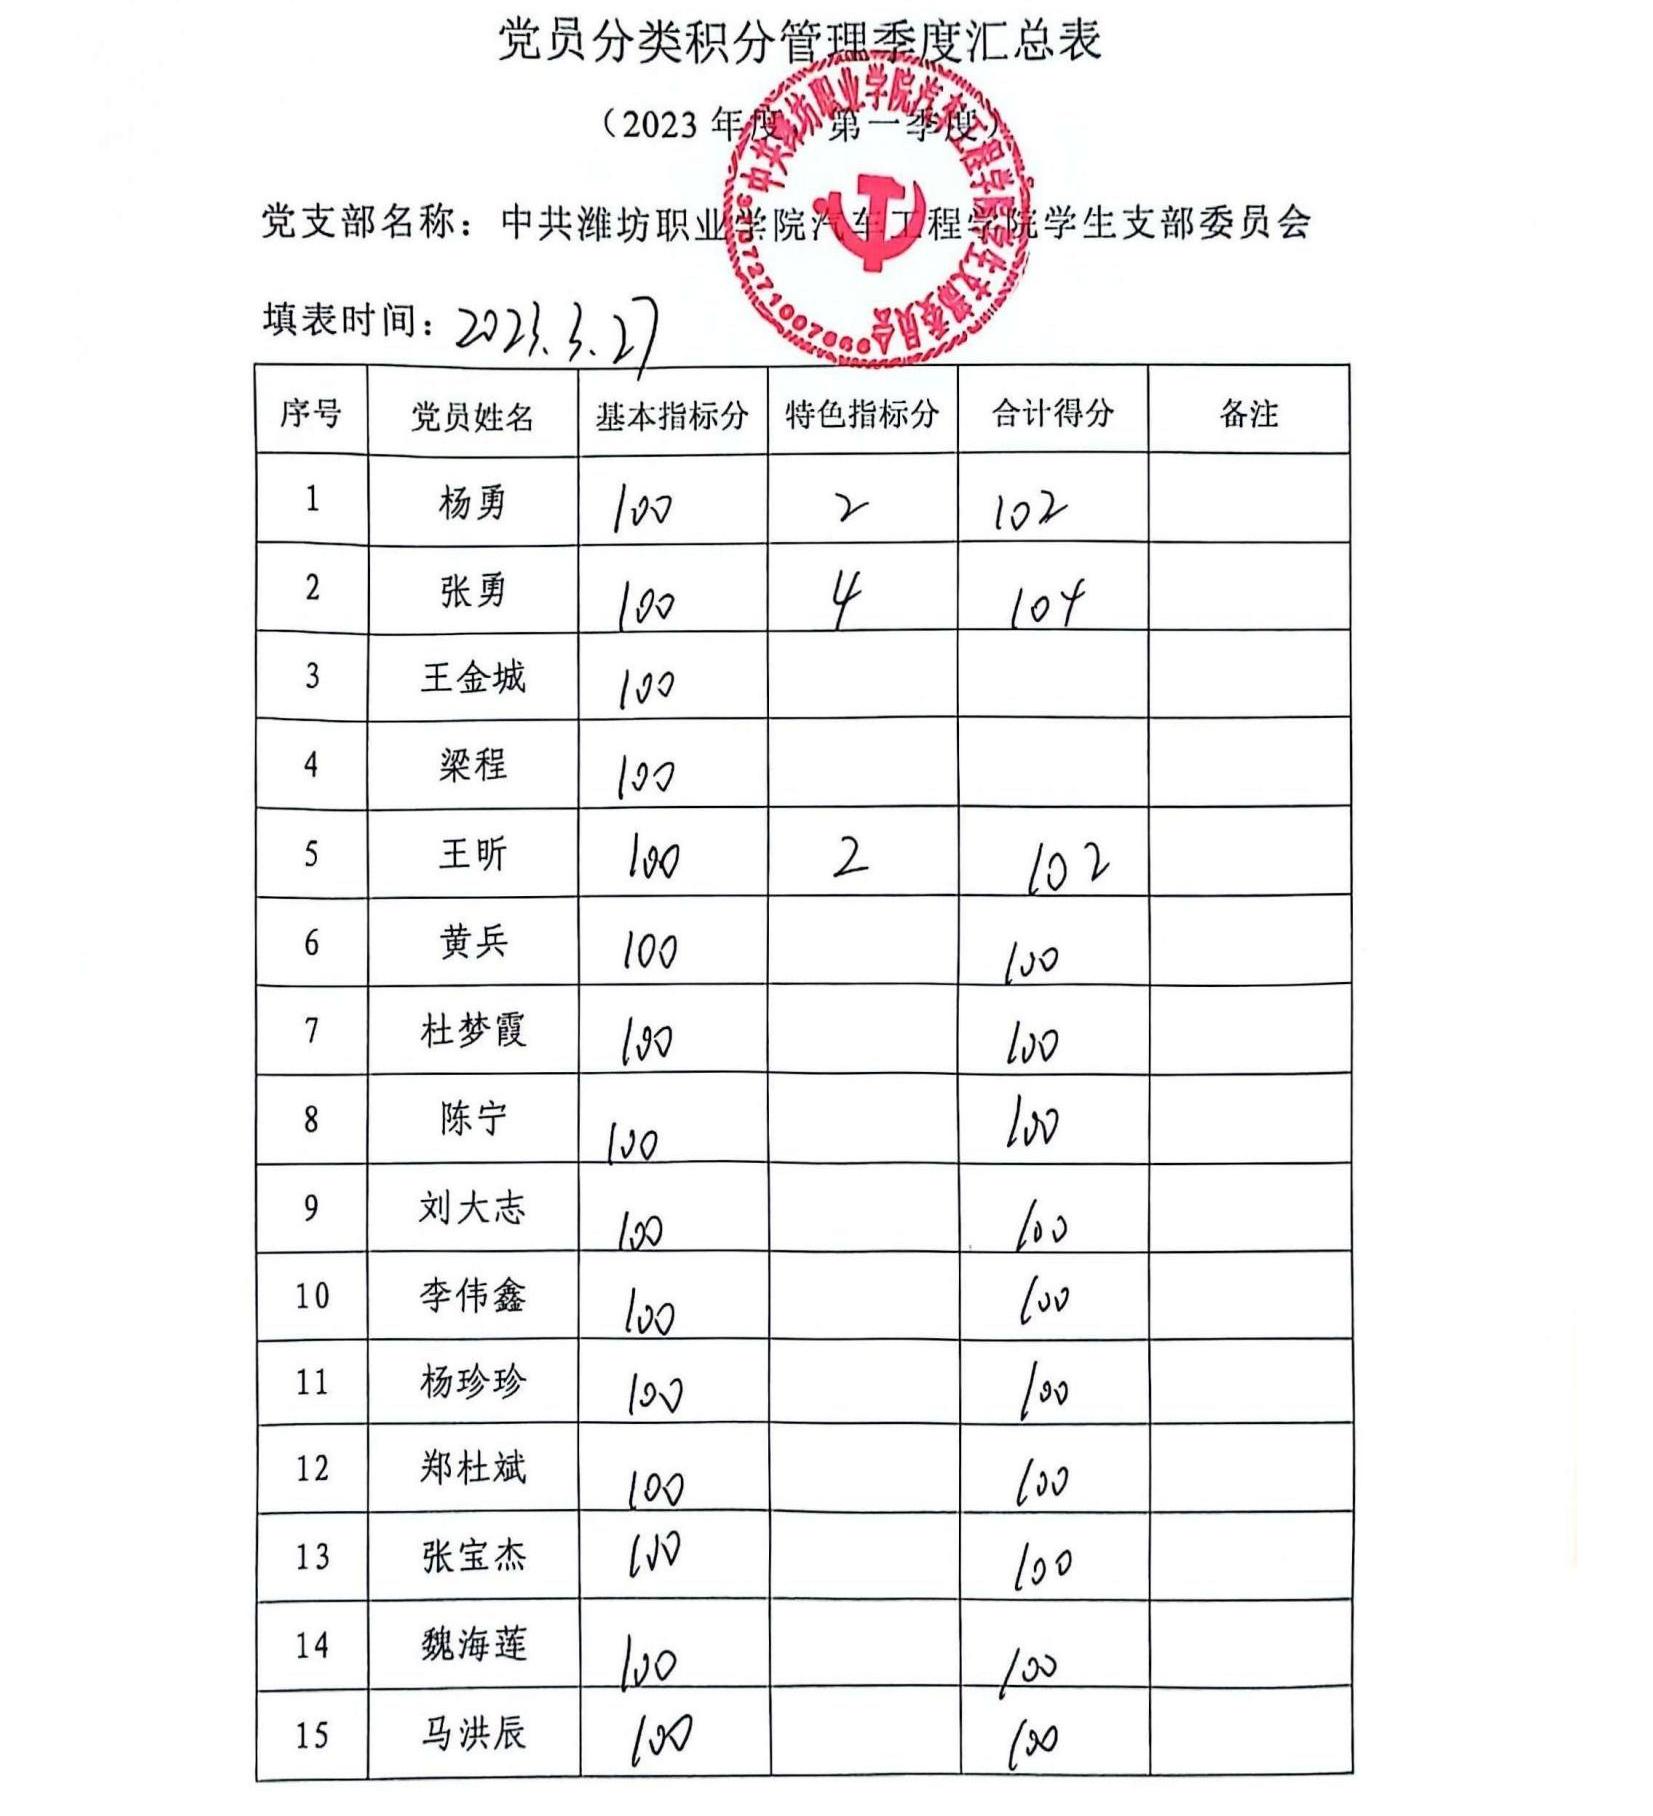 党员分类积分管理季度汇总表
（2023 年度，第一季度）
党支部名称：中共潍坊职业学院汽车工程学院学生支部委员会
填表时间：2023.3.27
中共潍坊职业学院汽车工程学院学生支部委员会
序号 党员姓名 基本指标分 特色指标分 合计得分 备注
1 杨勇 100 2 102
2 张勇 100 4 104
3 王金城 100
4 梁程 100
5 王昕 100 2 102
6 黄兵 100 100
7 杜梦霞 100 100
8 陈宁 100 100
9 刘大志 100 100
10 李伟鑫 100 100
11 杨珍珍 100 100
12 郑杜斌 100 100
13 张宝杰 100 100
14 魏海莲 100 100
15 马洪辰 100 100